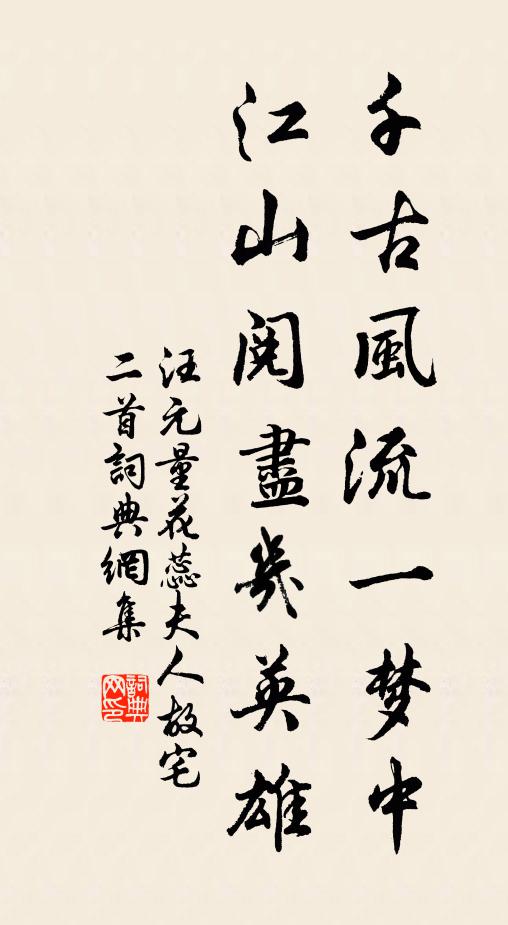 千古風流一梦中
江山閱盡幾英雄
汪元量花蕊夫人故宅
二首詞典網集
詞典网印